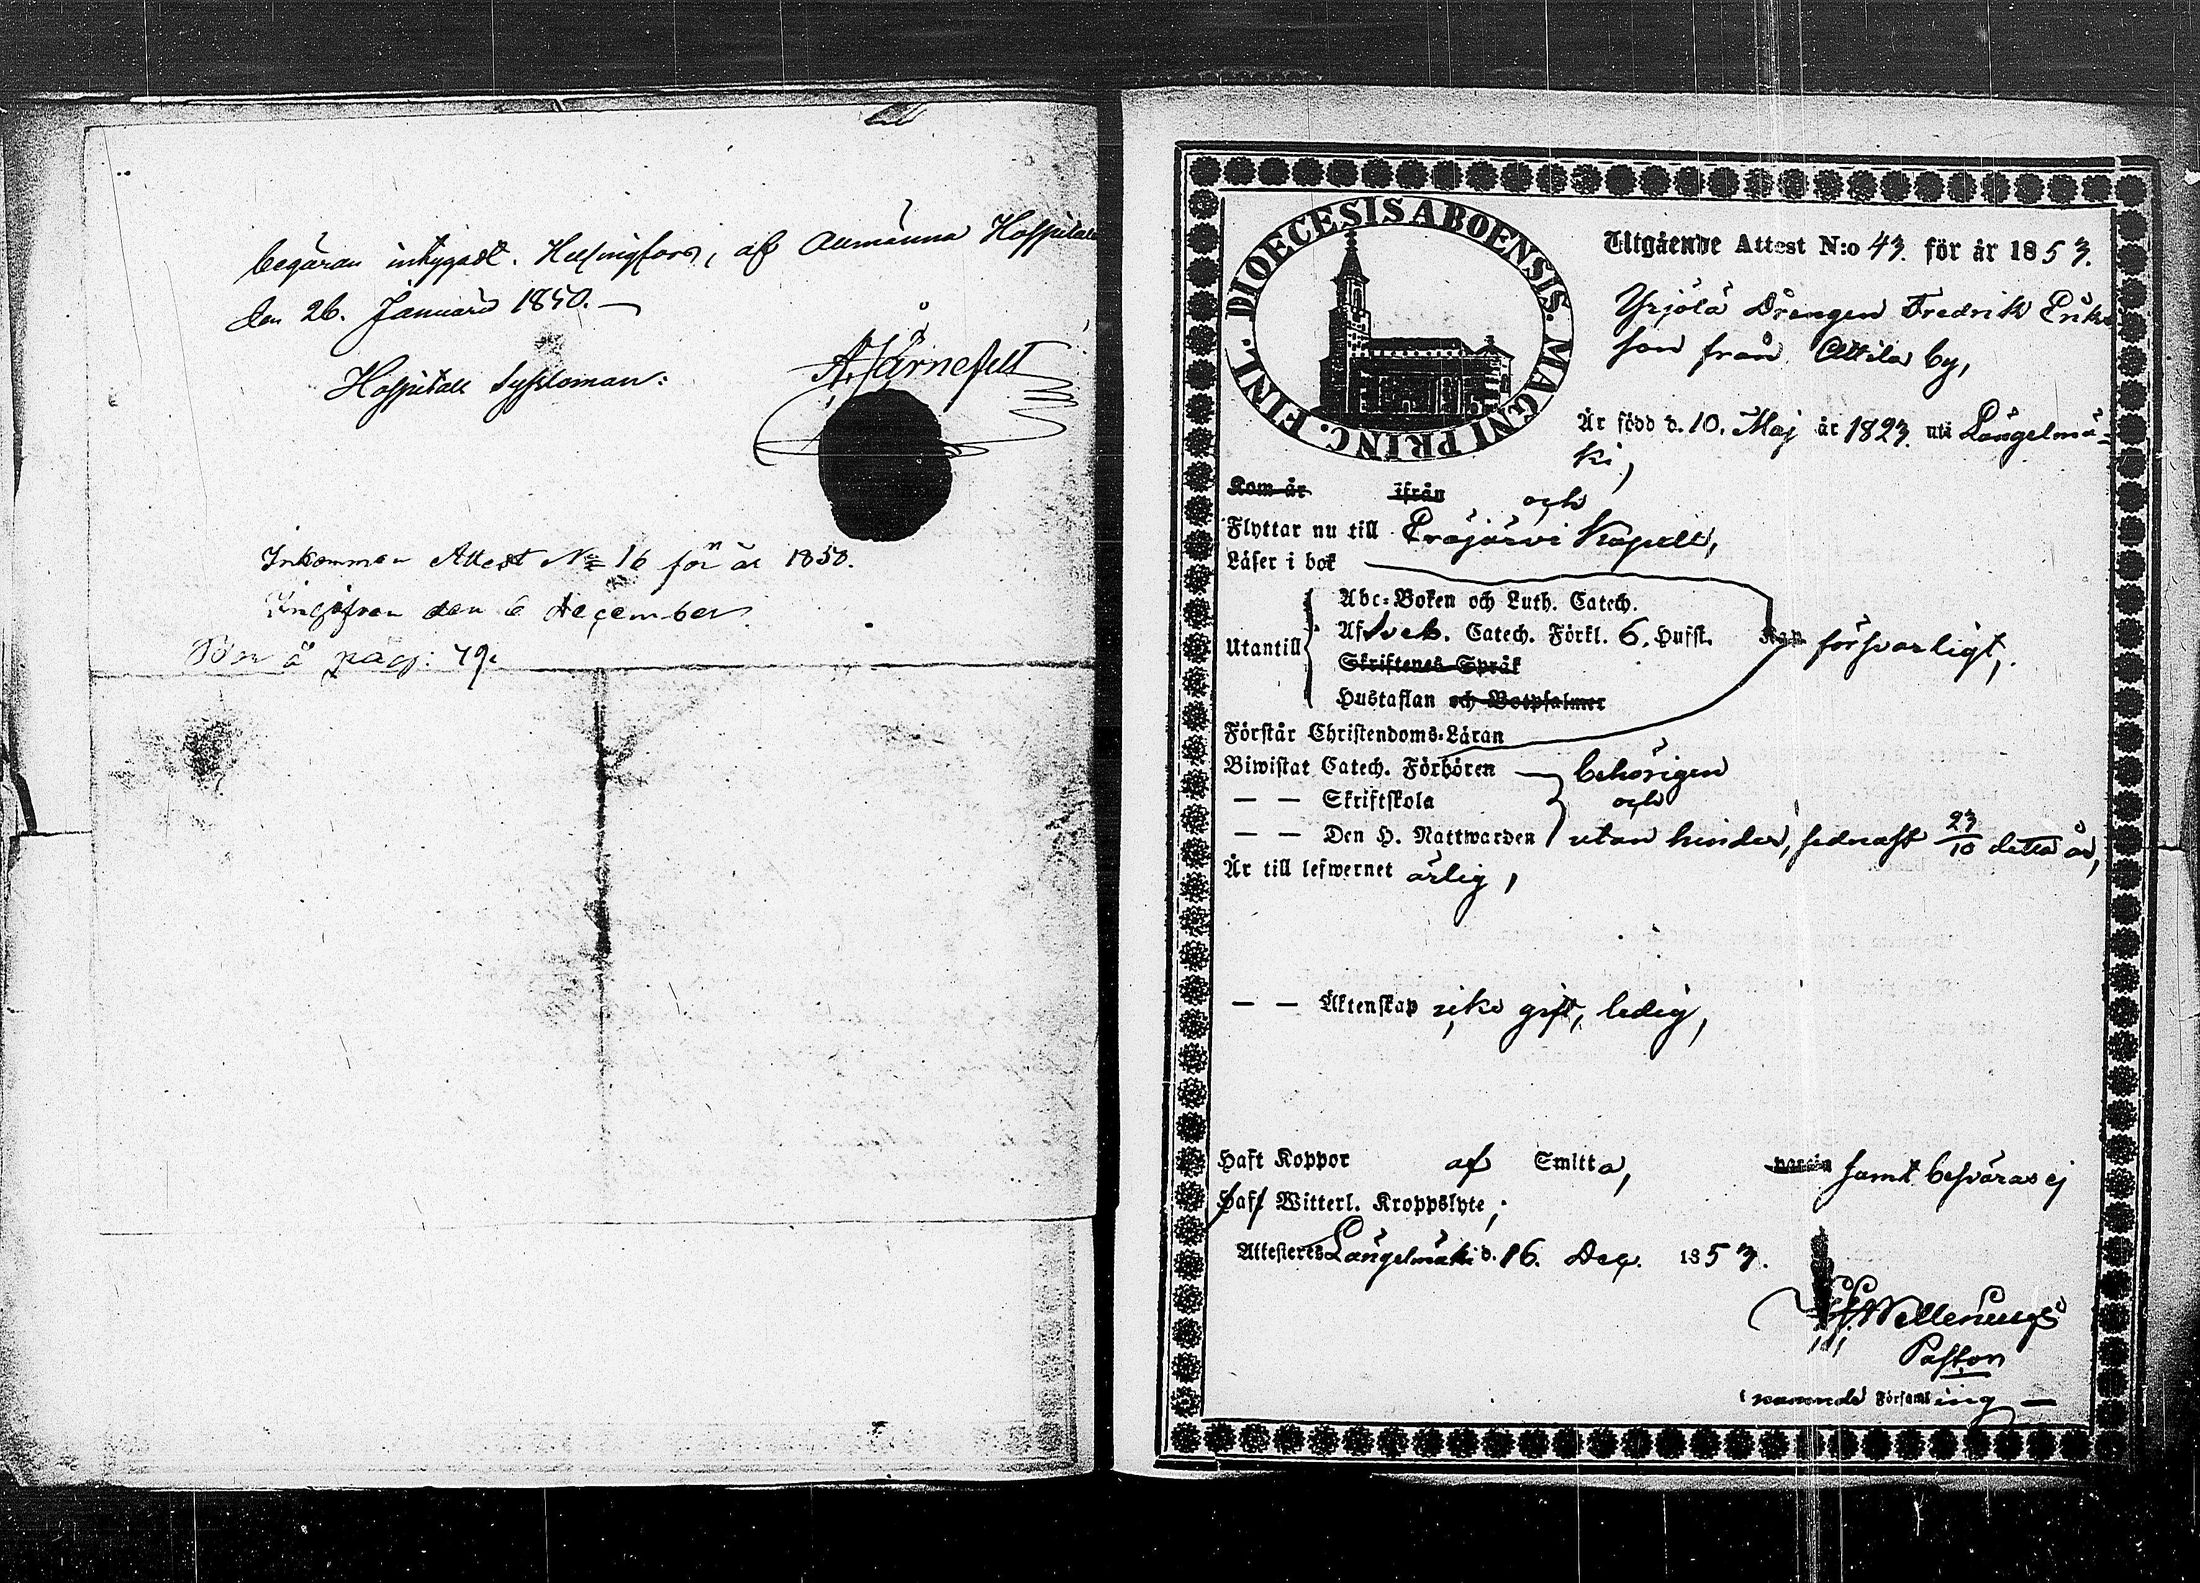 begäran intygadt. Helsingfors, af Allmänna Hospitale
den 26. Januarii 1850. —
Hospitals Syssloman:
A. Järnefelt
Inkommen Attest No 16 för år 1850.
den 6 December.
å pag: 79.
DIOECESIS ABOENSIS. MAGNI PRINC. FINL.
Utgående Attest N:o 43. för år 1853.
Yrjölä Drengen Fredrik Eriks
son från Attila by,
Är född d. 10. Maj år 1823. uti Längelmä-
ki,
Kom år ifrån och
Flyttar nu till Eräjärvi Kapell,
Läser i bok
Abc-Boken och Luth. Catech.
Utantill Af Sveb. Catech. Förkl. 6. Hufst. Kap. försvarligt,
Skriftenes Språk
Hustaflan och Botpsalmer
Förstår Christendoms-Läran
Biwistat Catech. Förhören — behörigen
— — Skriftskola och
— — Den H. Nattwarden utan hinder, sednast 23/10 detta år,
Är till lefwernet ärlig,
— — Äktenskap icke gift, ledig,
Haft Koppor af Smitta, samt besväras ej
af Witterl. Kroppslyte,
Attesteras Längelmäki d. 16. Dec. 1853.
Pastor
i namnde Församling —